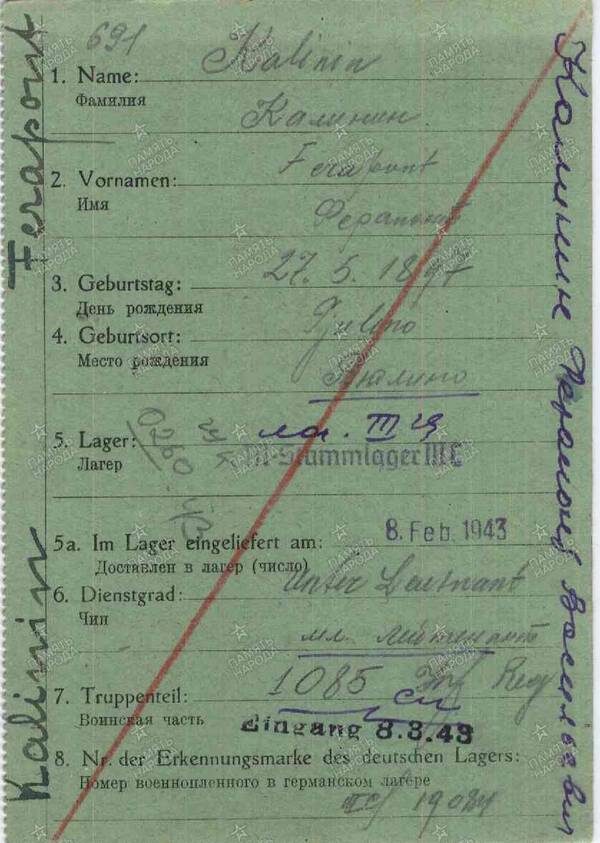 691
Kalinin
1. Name:
Фамилия
Калинин
Ferapont
2. Vornamen:
Имя
Ферапонт
3. Geburtstag: 27. 5. 1897
День рождения
4. Geburtsort: Pjelino
Место рождения
5. Lager: III
Лагер M-Stammlager III C
5a. Im Lager eingeliefert am: 8. Feb. 1943
Доставлен в лагер (число)
6. Dienstgrad: Unter Leutnant
Чин
мл. лейтенант
7. Truppenteil: 1085 Inf Reg
Воинская часть Eingang 8.3.43
8. Nr. der Erkennungsmarke des deutschen Lagers:
Номер военнопленного в германском лагере
19024
Kalinin Ferapont
Калинин Ферапонт Васильевич
ПАМЯТЬ НАРОДА